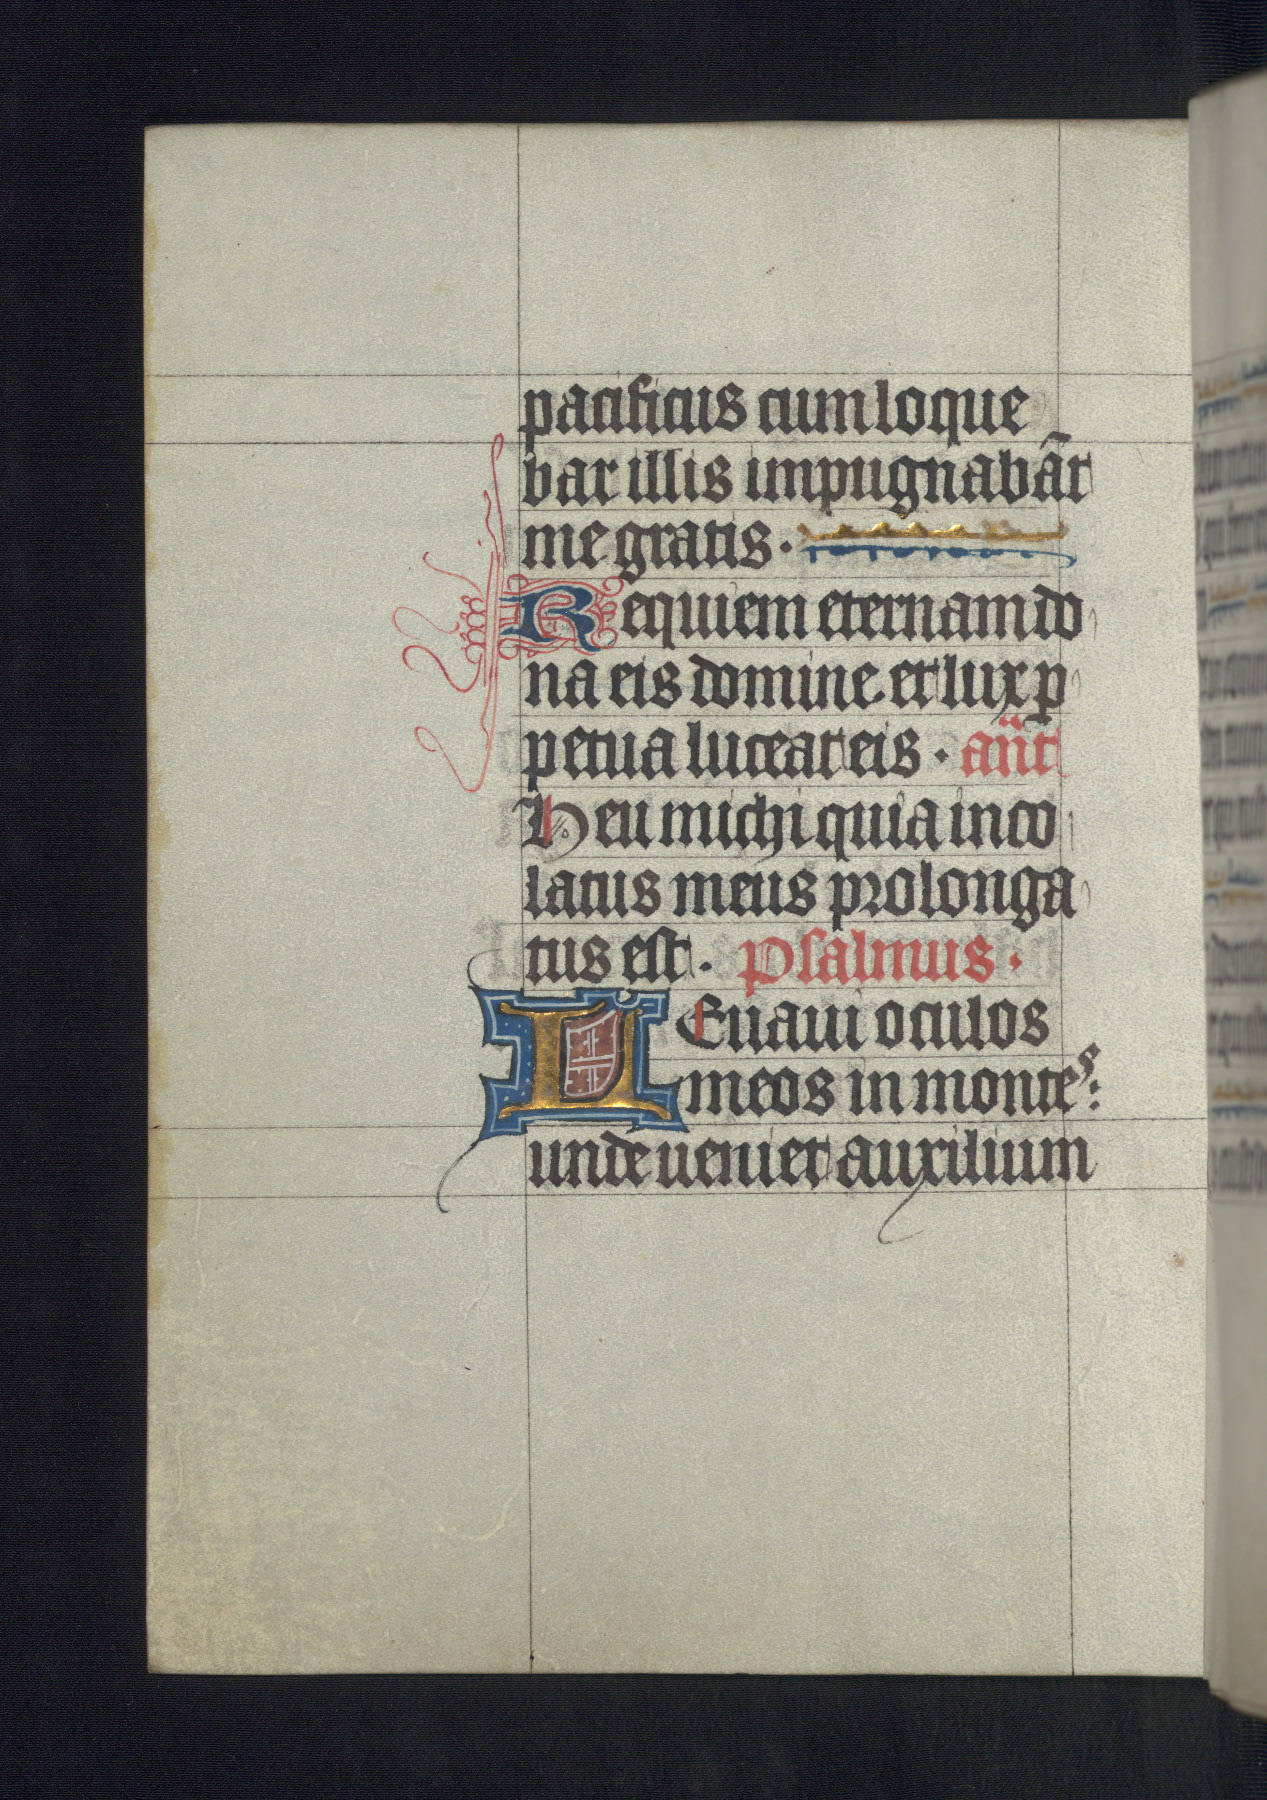 pacificus cum loque
bar illis impugnabãt
me gratis.
Requiem eternam do
na eis domine. et lux p
petua luceat eis. añt
Heu michi quia inco
latus meus prolonga
tus est. psalmus.
LEuaui oculos
meos in montes:
unde ueniet auxilium